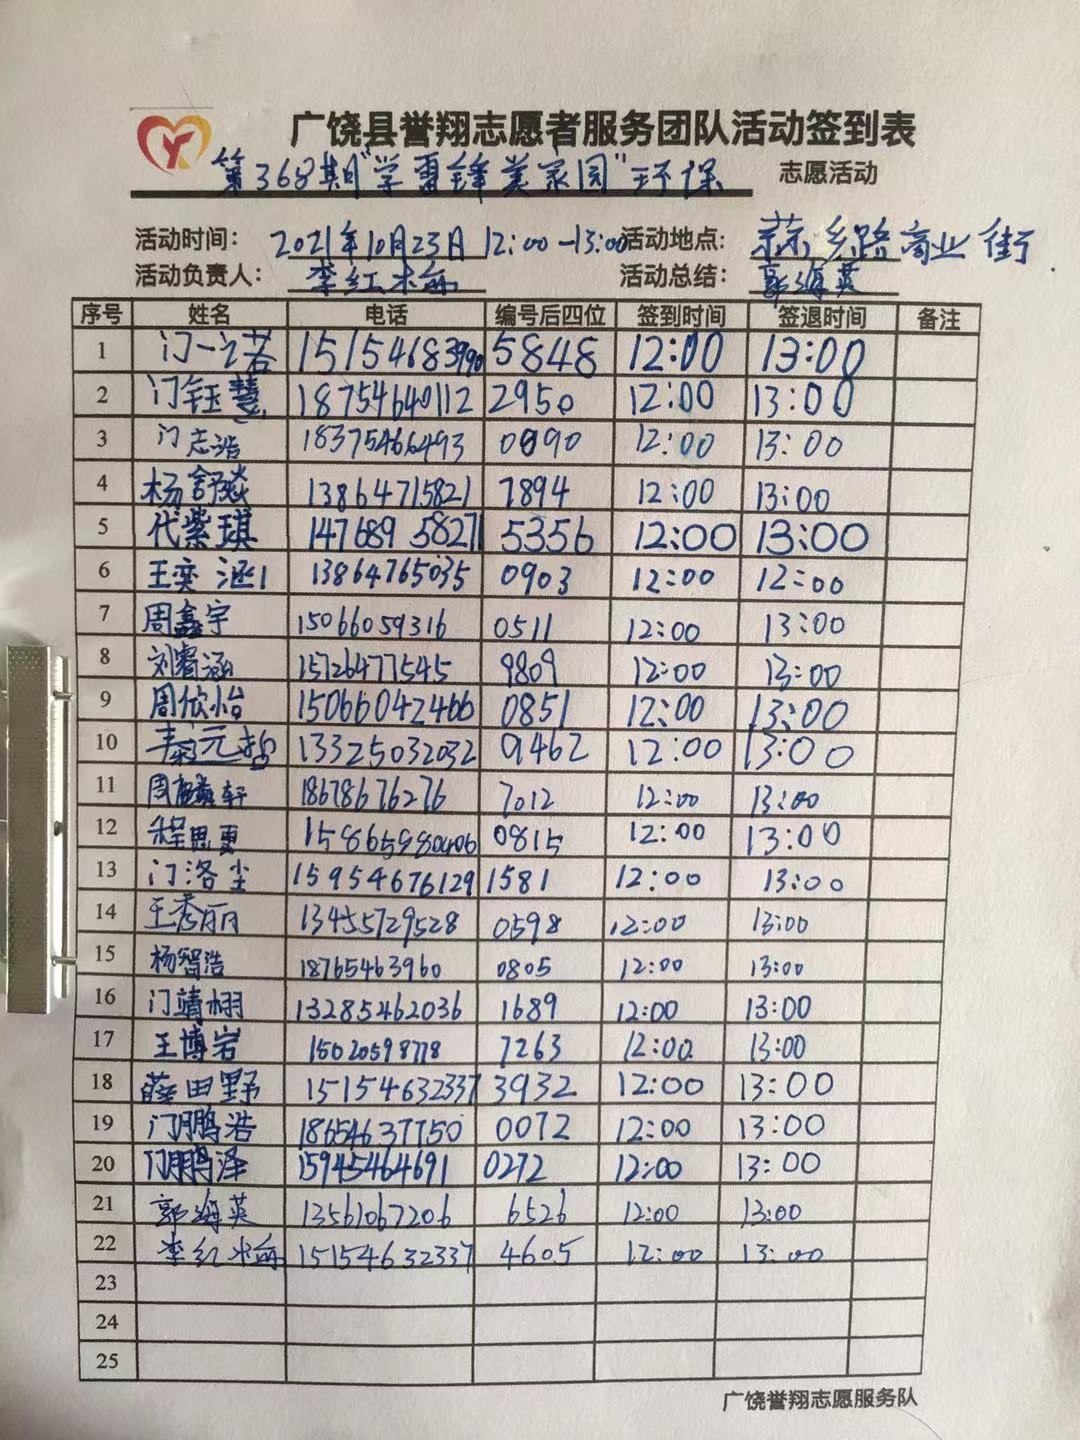 广饶县誉翔志愿者服务团队活动签到表
第368期"学雷锋美家园"环保 志愿活动
活动时间: 2021年10月23日 12:00-13:00 活动地点: 乡路商业街
活动负责人: 李红梅 活动总结: 郭海英
序号 姓名 电话 编号后四位 签到时间 签退时间 备注
1 门一诺 15154683990 5848 12:00 13:00
2 门钰慧 18754640112 2950 12:00 13:00
3 门志浩 18375466493 0090 12:00 13:00
4 杨舒焱 13864715821 7894 12:00 13:00
5 代紫琪 14768958271 5356 12:00 13:00
6 王奕涵 13864765035 0903 12:00 12:00
7 周鑫宇 15066059316 0511 12:00 13:00
8 刘睿涵 15726477545 9809 12:00 13:00
9 周欣怡 15066042466 0851 12:00 13:00
10 元 13325032032 9462 12:00 13:00
11 周麟轩 18678676276 7012 12:00 13:00
12 程思 0815 12:00 13:00
13 门洛尘 15954676129 1581 12:00 13:00
14 王秀丽 13455729528 0598 12:00 13:00
15 杨智浩 18765463960 0805 12:00 13:00
16 门靖栩 13285462036 1689 12:00 13:00
17 王博岩 15020598778 7263 12:00 13:00
18 薛田野 15154632337 3932 12:00 13:00
19 门鹏浩 18654637750 0072 12:00 13:00
20 门鹏泽 15945464691 0272 12:00 13:00
21 郭海英 13561067206 6526 12:00 13:00
22 李红梅 15154632337 4605 12:00 13:00
23
24
25
广饶誉翔志愿服务队